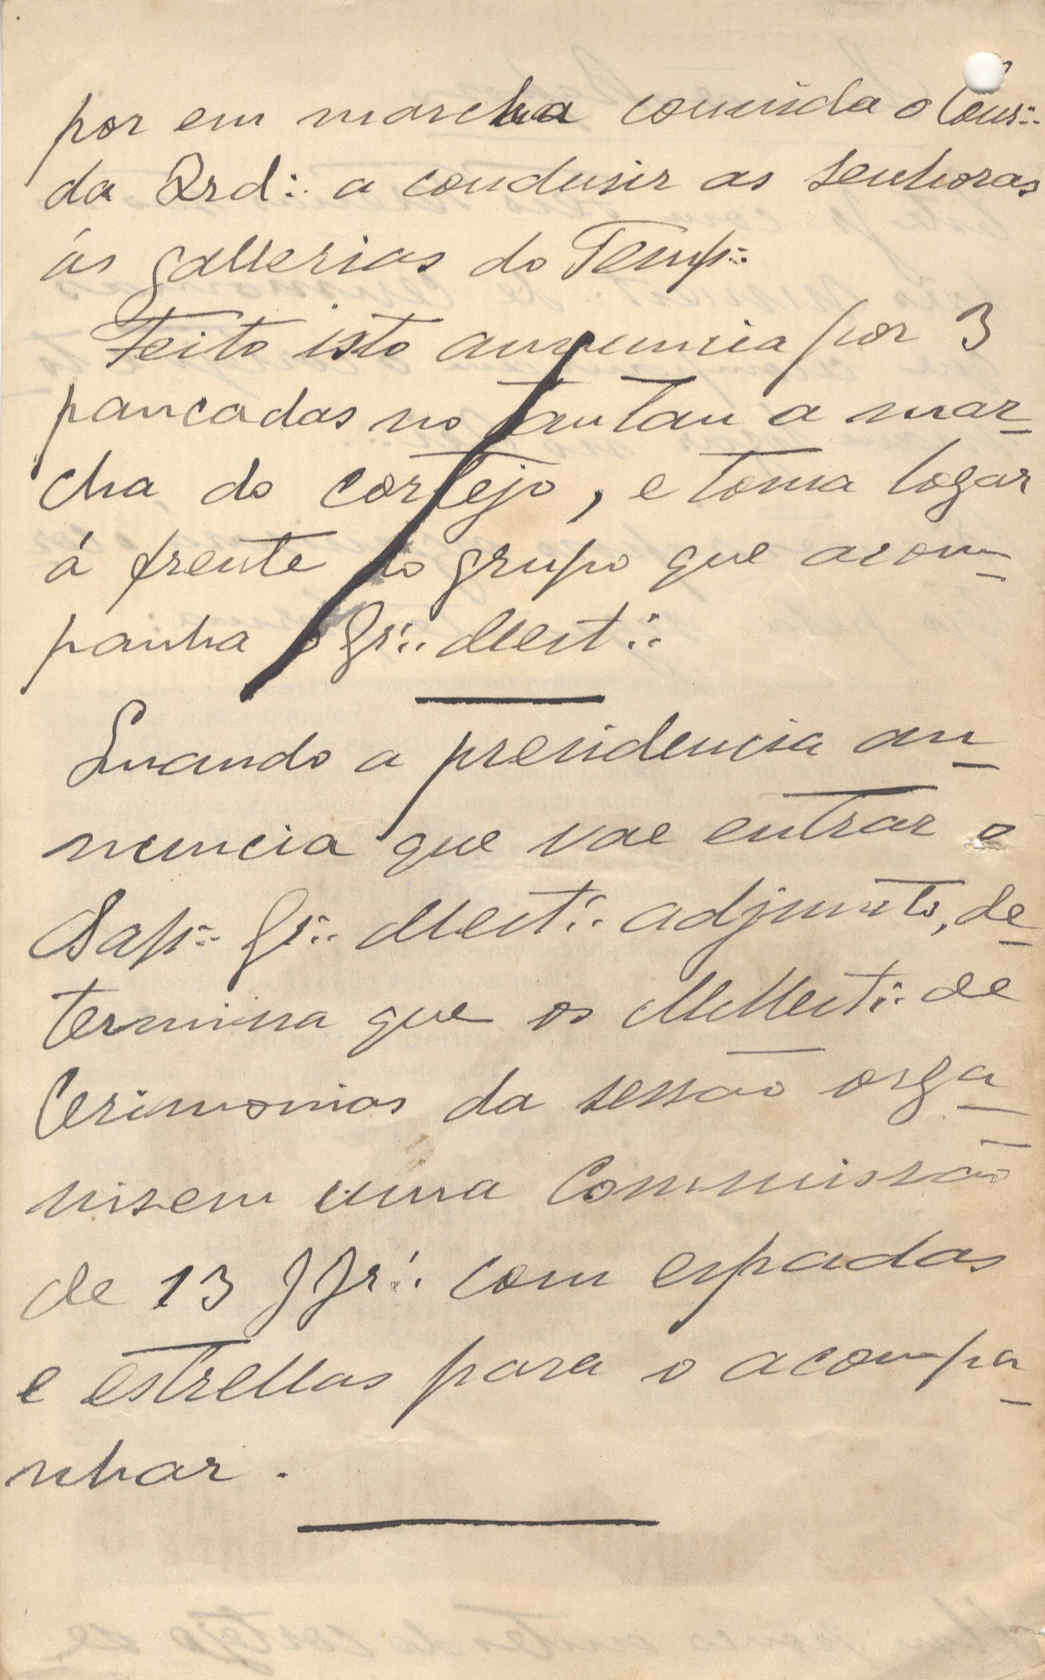 por em marcha convida o Cons∴
da Ord∴ a condusir as senhoras
ás gallerias do Temp∴
Feito isto annuncia por 3
pancadas no tantan a mar-
cha do cortejo, e toma logar
á frente do grupo que acom-
panha o Gr∴ Mest∴
Quando a presidencia an-
nuncia que vae entrar o
Sap∴ Gr∴ Mest∴ adjunto, de-
termina que os MMest∴ de
Cerimonias da sessão orga-
nisem uma Commissão
de 13 JJr∴ com espadas
e estrellas para o acompa-
nhar.